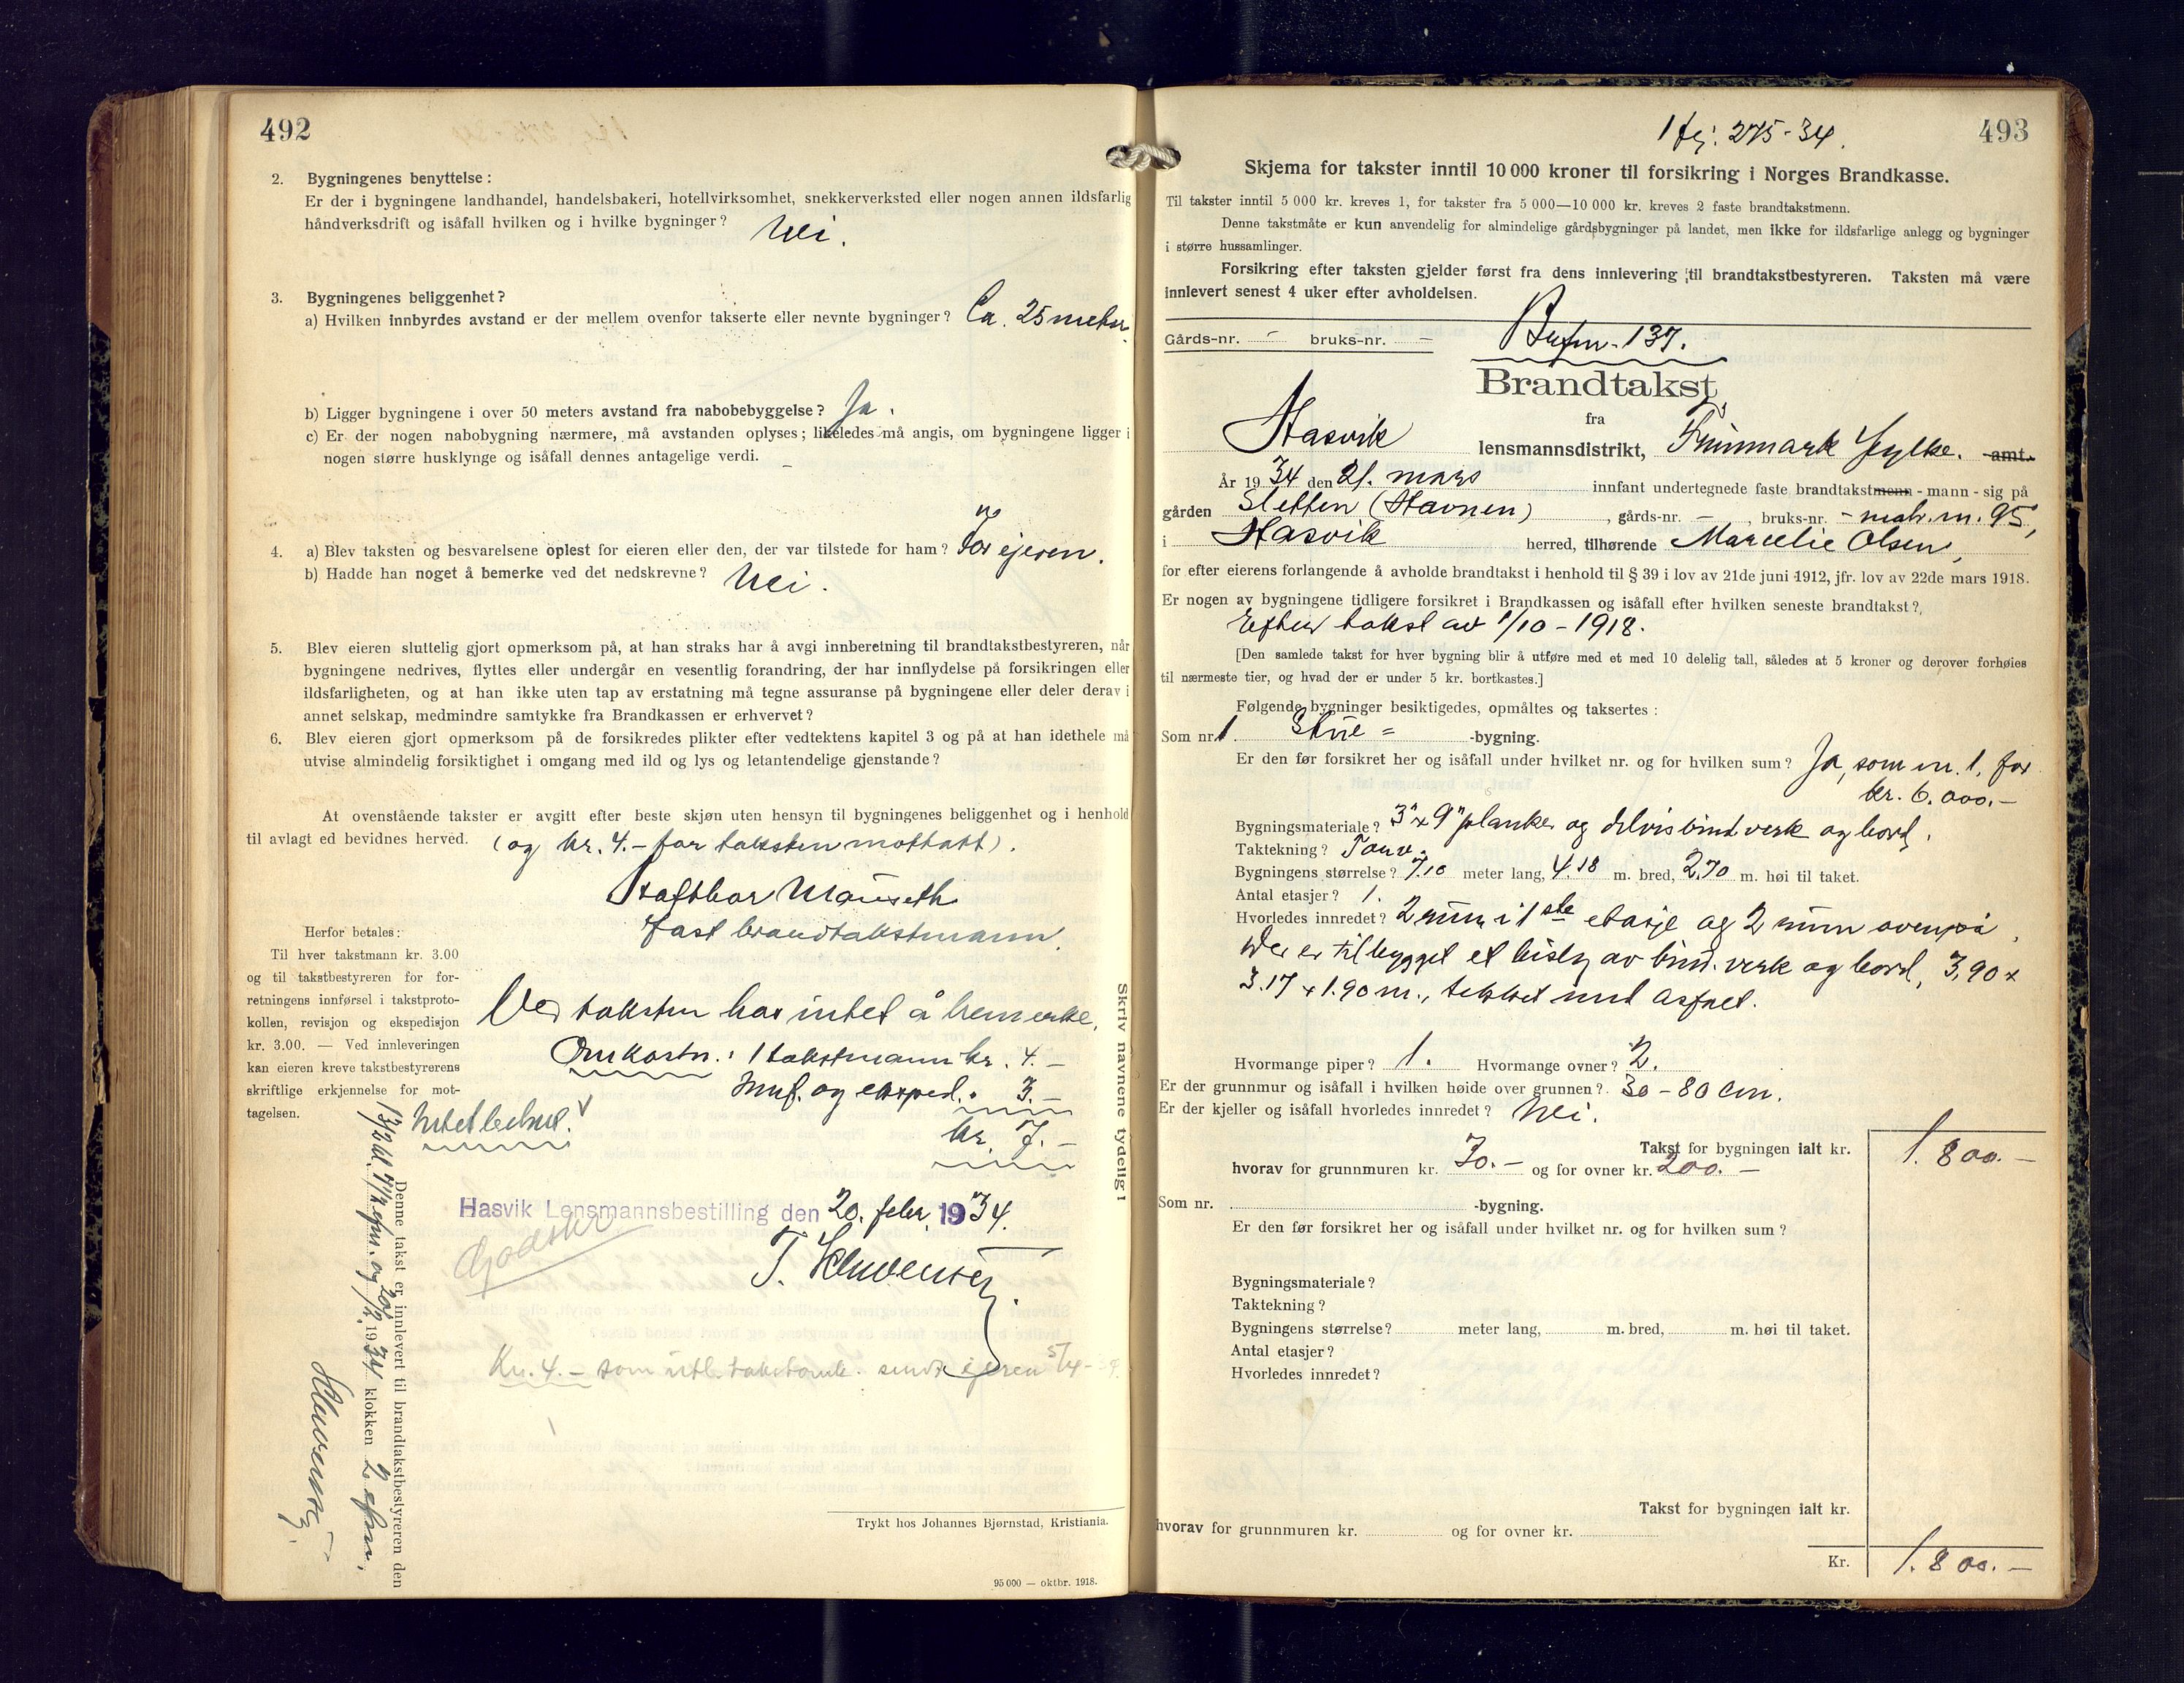 492
2. Bygningenes benyttelse:
Er der i bygningene landhandel, handelsbakeri, hotellvirksomhet, snekkerverksted eller nogen annen ildsfarlig
håndverksdrift og isåfall hvilken og i hvilke bygninger? Nei.
3. Bygningenes beliggenhet?
a) Hvilken innbyrdes avstand er der mellem ovenfor takserte eller nevnte bygninger? Ca. 25 meter
b) Ligger bygningene i over 50 meters avstand fra nabobebyggelse? Ja.
c) Er der nogen nabobygning nærmere, må avstanden oplyses; likeledes må angis, om bygningene ligger i
nogen større husklynge og isåfall dennes antagelige verdi. –
4. a) Blev taksten og besvarelsene oplest for eieren eller den, der var tilstede for ham? For ejeren.
b) Hadde han noget å bemerke ved det nedskrevne? Nei.
5. Blev eieren sluttelig gjort opmerksom på, at han straks har å avgi innberetning til brandtakstbestyreren, når
bygningene nedrives, flyttes eller undergår en vesentlig forandring, der har innflydelse på forsikringen eller
ildsfarligheten, og at han ikke uten tap av erstatning må tegne assuranse på bygningene eller deler derav i
annet selskap, medmindre samtykke fra Brandkassen er erhvervet?
6. Blev eieren gjort opmerksom på de forsikredes plikter efter vedtektens kapitel 3 og på at han idethele må
utvise almindelig forsiktighet i omgang med ild og lys og letantendelige gjenstande?
At ovenstående takster er avgitt efter beste skjøn uten hensyn til bygningenes beliggenhet og i henhold
til avlagt ed bevidnes herved. (og kr. 4.- for taksten mottatt).
Mauseth
fast brandtakstmann.
Herfor betales:
Til hver takstmann kr. 3.00
og til takstbestyreren for for-
retningens innførsel i takstproto-
kollen, revisjon og ekspedisjon
kr. 3.00. — Ved innleveringen
kan eieren kreve takstbestyrerens
skriftlige erkjennelse for mot-
tagelsen.
Ved taksten har intet å bemerke.
Omkostn.: 1 takstmann kr. 4.–
Innf. og eksped. " 3.–
kr. 7.–
Intet
Hasvik Lensmannsbestilling den 20. febr. 1934.
T.
Kr. 4.– som takstomk. sendt ejeren 5/4
Denne takst er innlevert til brandtakstbestyreren den
13/2 kl. 7 1/2 efm. og 20/2 1934 klokken 2 efm.
Skriv navnene tydelig!
Trykt hos Johannes Bjørnstad, Kristiania.
95 000 — oktbr. 1918.
1 fj: 275-34.
493
Skjema for takster inntil 10 000 kroner til forsikring i Norges Brandkasse.
Til takster inntil 5 000 kr. kreves 1, for takster fra 5 000—10 000 kr. kreves 2 faste brandtakstmenn.
Denne takstmåte er kun anvendelig for almindelige gårdsbygninger på landet, men ikke for ildsfarlige anlegg og bygninger
i større hussamlinger.
Forsikring efter taksten gjelder først fra dens innlevering til brandtakstbestyreren. Taksten må være
innlevert senest 4 uker efter avholdelsen.
Gårds-nr. – bruks-nr. – 137.
Brandtakst
fra
Hasvik lensmannsdistrikt, Finnmark fylke. amt.
År 1934 den 21. mars innfant undertegnede faste brandtakstmenn - mann - sig på
gården Sletten (Havnen), gårds-nr. –, bruks-nr. – matr. nr. 95,
i Hasvik herred, tilhørende Marcelie Olsen,
for efter eierens forlangende å avholde brandtakst i henhold til § 39 i lov av 21de juni 1912, jfr. lov av 22de mars 1918.
Er nogen av bygningene tidligere forsikret i Brandkassen og isåfall efter hvilken seneste brandtakst?
Efter takst av 1/10 - 1918.
[Den samlede takst for hver bygning blir å utføre med et med 10 delelig tall, således at 5 kroner og derover forhøies
til nærmeste tier, og hvad der er under 5 kr. bortkastes.]
Følgende bygninger besiktigedes, opmåltes og taksertes:
Som nr. 1. Stue = -bygning.
Er den før forsikret her og isåfall under hvilket nr. og for hvilken sum? Ja, som nr. 1, for
kr. 6.000.–
Bygningsmateriale? 3" x 9" planker og delvis bindverk og bord.
Taktekning? Torv.
Bygningens størrelse? 7.10 meter lang, 4.18 m. bred, 2.70 m. høi til taket.
Antal etasjer? 1.
Hvorledes innredet? 2 rum i 1ste etasje og 2 rum ovenpå.
Der er tilbygget et bislag av bind. verk og bord, 3,90 x
3.17 x 1.90 m., tekket med asfalt.
Hvormange piper? 1. Hvormange ovner? 2.
Er der grunnmur og isåfall i hvilken høide over grunnen? 30 - 80 cm.
Er der kjeller og isåfall hvorledes innredet? Nei.
Takst for bygningen ialt kr. 1.800.–
hvorav for grunnmuren kr. 70.– og for ovner kr. 200.–
Som nr. -bygning.
Er den før forsikret her og isåfall under hvilket nr. og for hvilken sum?
Bygningsmateriale?
Taktekning?
Bygningens størrelse? meter lang, m. bred, m. høi til taket.
Antal etasjer?
Hvorledes innredet?
Takst for bygningen ialt kr.
hvorav for grunnmuren kr. og for ovner kr.
Kr. 1.800.–